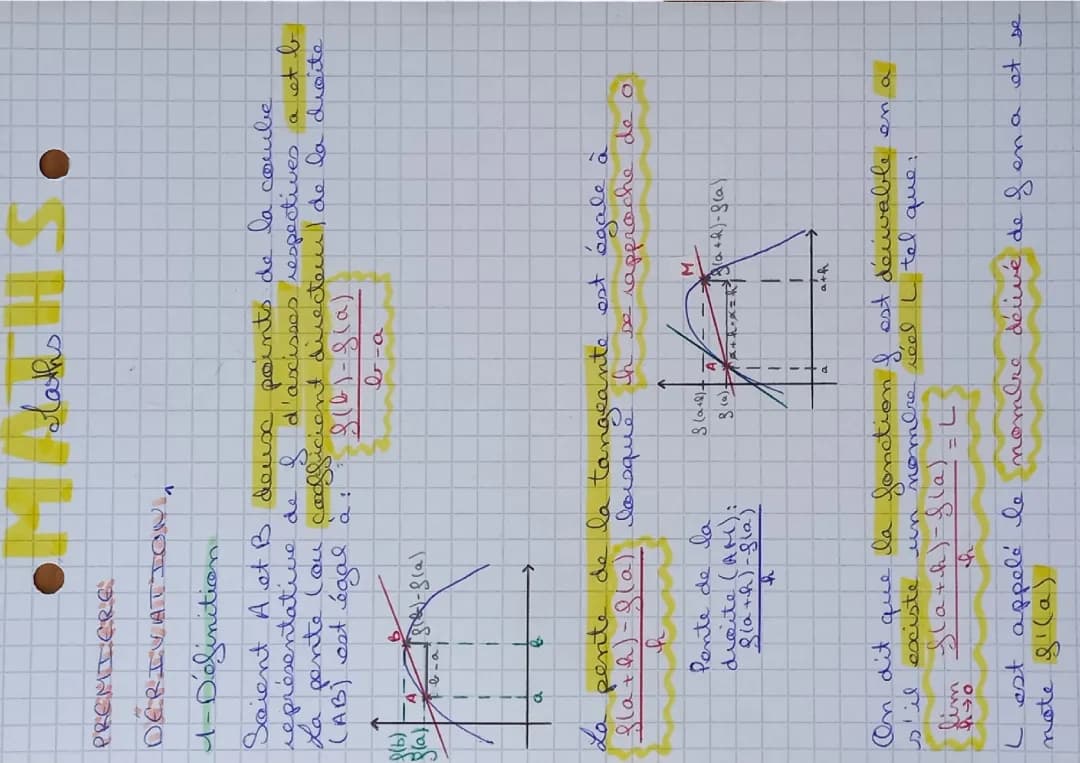 MATHS
Maths
PREMIERE
DÉRIVATION
1-Définition
Soient A et B deux points de la courbe
représentative de f d'abscisses respectives a et b
La pente (ou coefficient directeur) de la droite
(AB) est égal à : f(b)-f(a)
b-a
f(b)
f(a)
A
B
b-a
f(b)-f(a)
a
b
La pente de la tangeante est égale à
f(a+h)-f(a) lorsque h se rapproche de 0
h
Pente de la
droite (AM):
f(a+h)-f(a)
h
f(a+h)
f(a)
A
M
a+h-x=h
f(a+h)-f(a)
a
a+h
On dit que la fonction f est dérivable en a
s'il existe un nombre réel L tel que:
lim f(a+h)-f(a) = L
h→0 h
L est appelé le nombre dérivé de f en a et se
note f'(a)